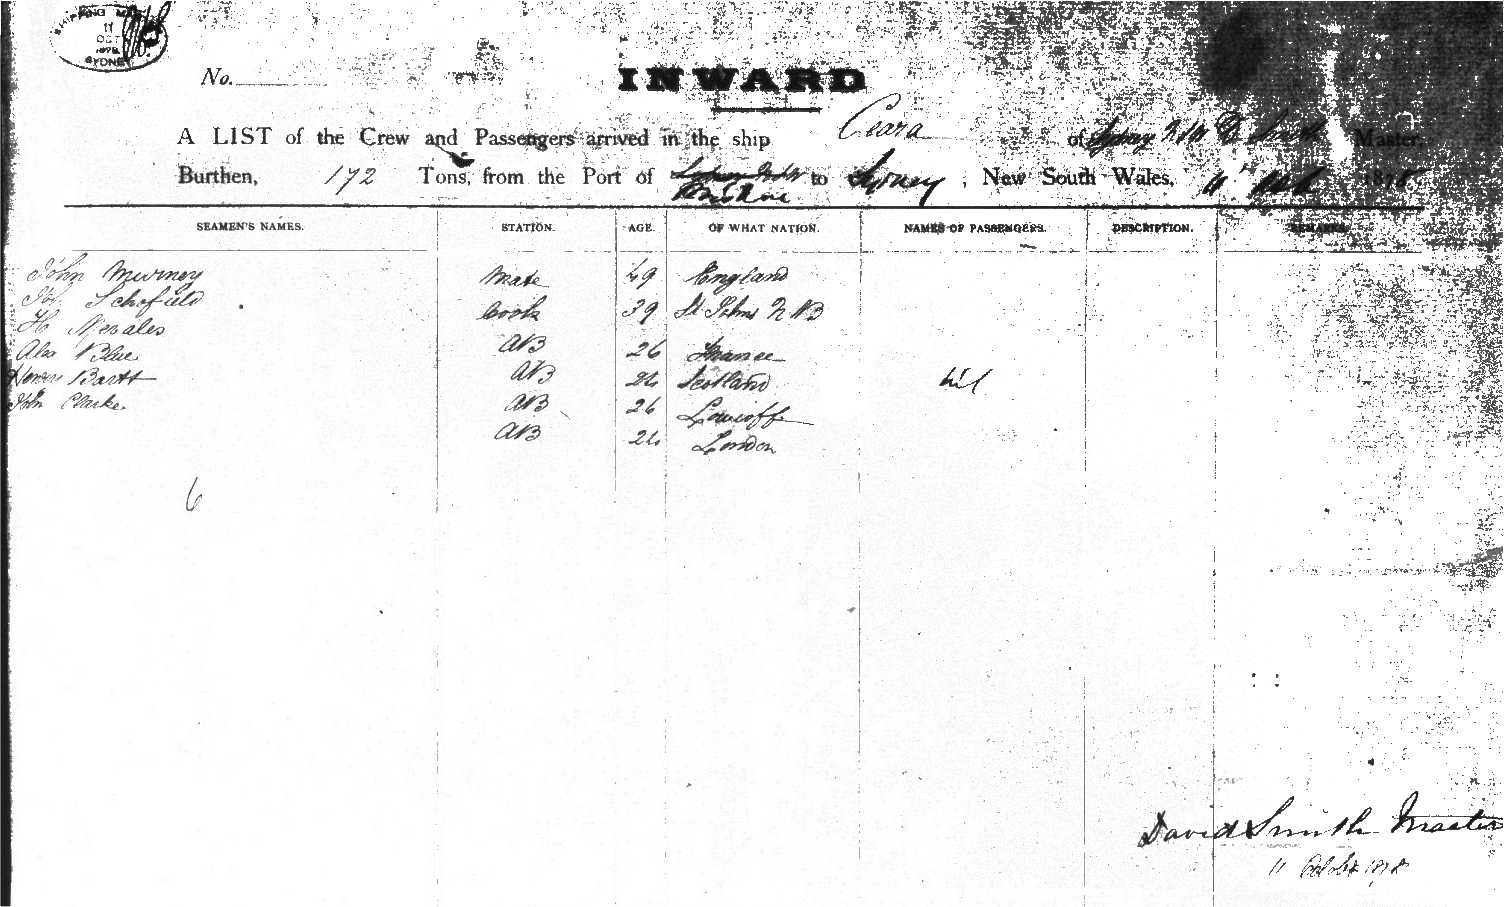 SHIPPING MA
11
OCT
1878
SYDNEY
No.
INWARD
A LIST of the Crew and Passengers arrived in the ship Ceara of Sydney NSW D. Smith Master,
Burthen, 172 Tons, from the Port of Sydney NSW to Sydney, New South Wales, 11 1878
SEAMEN'S NAMES. STATION. AGE. OF WHAT NATION. NAMES OF PASSENGERS. DESCRIPTION. REMARKS
John Murney Mate 49 England
Schofield Cook 39 St Johns N B
H AB 26 France
Alex Blue AB 26 Scotland
Bartt AB 26
John Clarke AB 26 London
nil
6
David Smith Master
11 October 1878